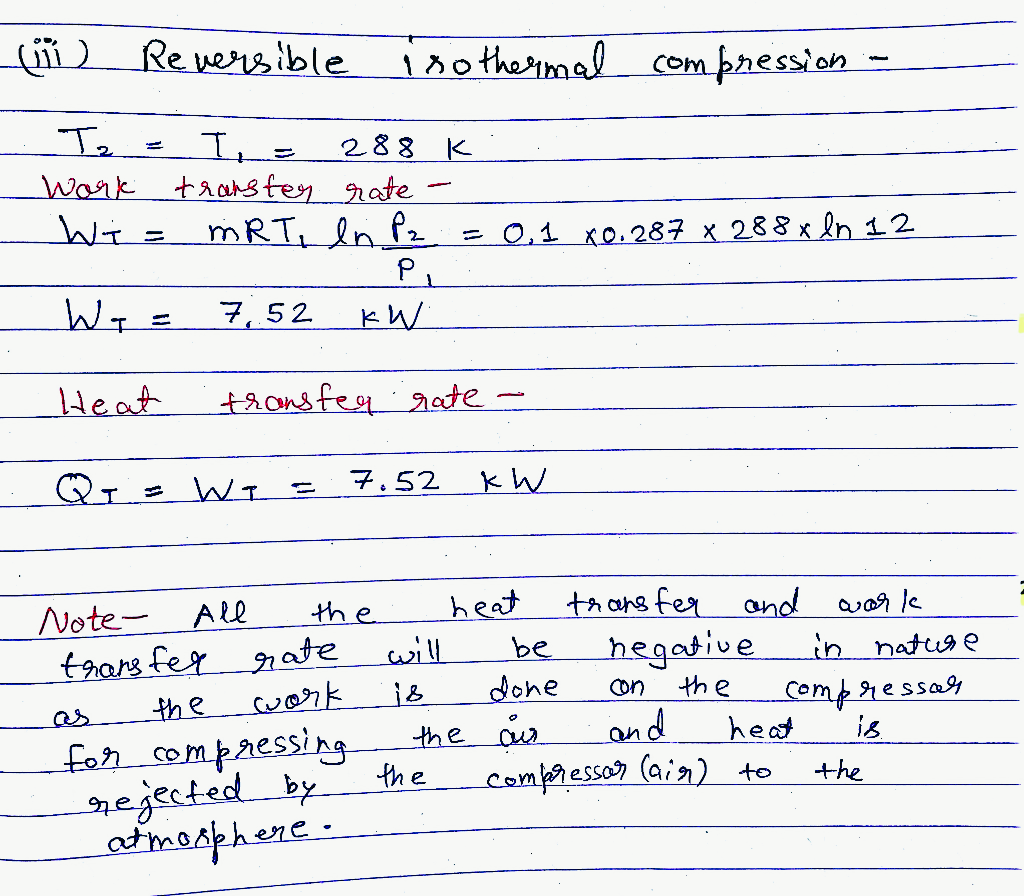 (iii) Reversible isothermal compression -
T₂ = T₁ = 288 K
Work transfer rate -
W_T = mRT₁ ln P₂/P₁ = 0.1 x0.287 x 288 x ln 12
W_T = 7.52 kW
Heat transfer rate -
Q_T = W_T = 7.52 kW
Note- All the heat transfer and work
transfer rate will be negative in nature
as the work is done on the compressor
for compressing the air and heat is
rejected by the compressor (air) to the
atmosphere.